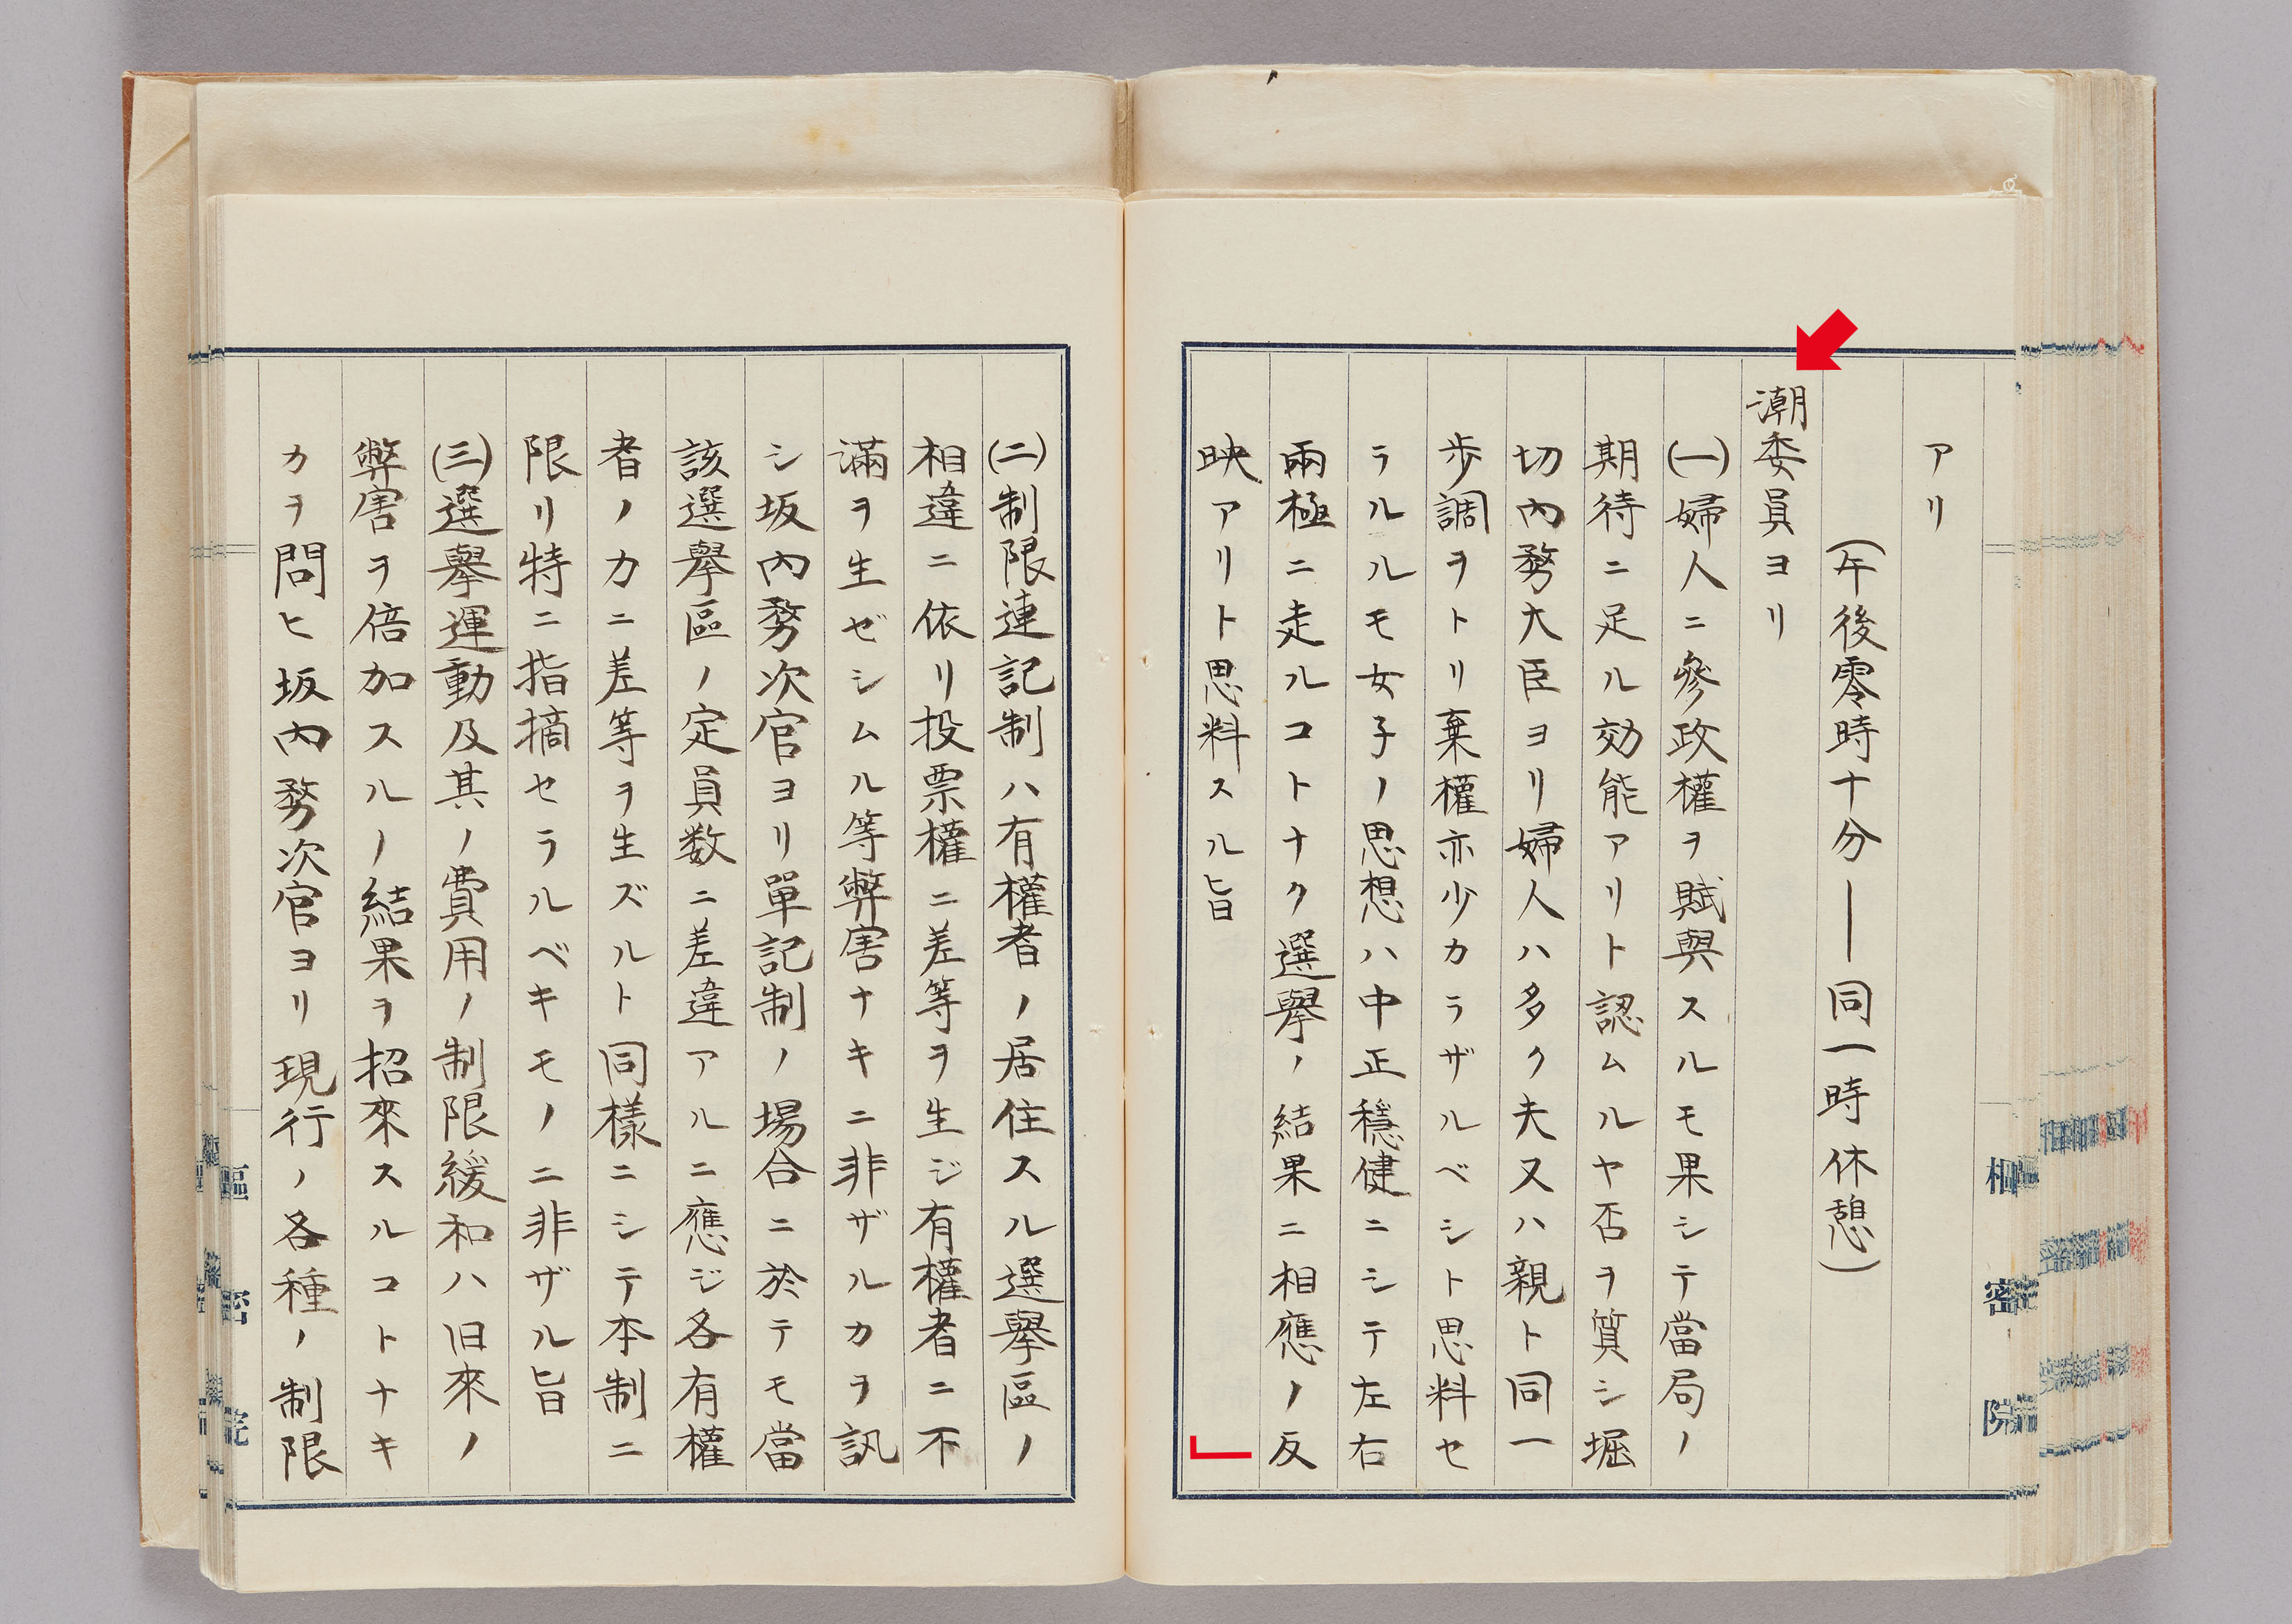 アリ
(午後零時十分―同一時休憩)
潮委員ヨリ
(一)婦人ニ參政權ヲ賦與スルモ果シテ當局ノ
期待ニ足ル効能アリト認ムルヤ否ヲ質シ堀
切內務大臣ヨリ婦人ハ多ク夫又ハ親ト同一
歩調ヲトリ棄權亦少カラザルベシト思料セ
ラルルモ女子ノ思想ハ中正穩健ニシテ左右
兩極ニ走ルコトナク選擧ノ結果ニ相應ノ反
映アリト思料スル旨
樞密院
(二)制限連記制ハ有權者ノ居住スル選擧區ノ
相違ニ依リ投票權ニ差等ヲ生ジ有權者ニ不
滿ヲ生ゼシムル等弊害ナキニ非ザルカヲ訊
シ坂內務次官ヨリ單記制ノ場合ニ於テモ當
該選擧區ノ定員数ニ差違アルニ應ジ各有權
者ノカニ差等ヲ生ズルト同樣ニシテ本制ニ
限リ特ニ指摘セラルベキモノニ非ザル旨
(三)選擧運動及其ノ費用ノ制限緩和ハ旧來ノ
弊害ヲ倍加スルノ結果ヲ招來スルコトナキ
カヲ問ヒ坂內務次官ヨリ現行ノ各種ノ制限